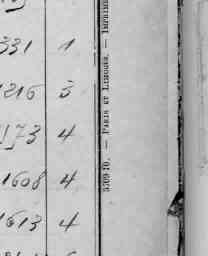 331 1
1216 3
1173 4
1608 4
1613 4
5709-10. — PARIS ET LIMOGES. — IMPRIM